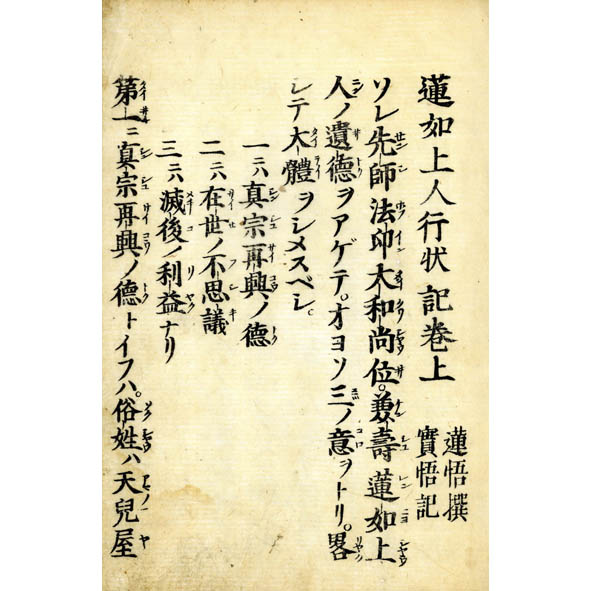 蓮如上人行状記巻上
蓮悟撰
實悟記
ソレ先師法印大和尚位。兼壽蓮如上
人ノ遺德ヲアゲテ。オヨソ三ノ意ヲトリ。畧
シテ大體ヲシメスベシ。
一ニハ真宗再興ノ德
二ニハ在世ノ不思議
三ニハ滅後ノ利益ナリ
第一ニ真宗再興ノ德トイフハ。俗姓ハ天兒屋